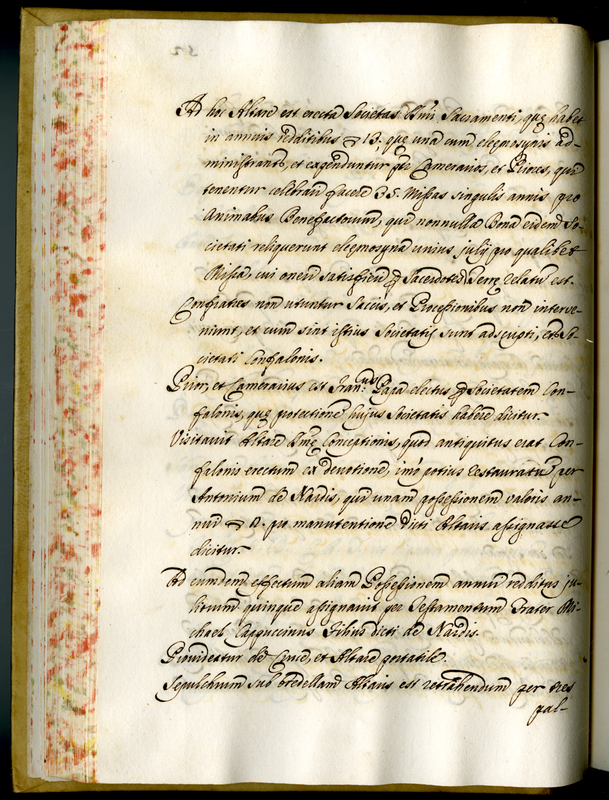 Ad hoc Altare est erecta Societas Ssmi Sacramenti, quę habet
in annuis redditibus 13. quę una cum eleęmosynis ad-
ministrantr, et expenduntur per Camerarium, et Priores, qui
tenentur celebrari facere 35. Missas singulis annis pro
Animabus Benefactorum, qui nonnulla Bona eidem So-
cietati reliquerunt eleęmosyna unius julij pro qualibet
Missa, cui oneri satisfieri per Sacerdotes Terrę relatu est.
Confratres non utuntur Saccis, et Processionibus non interve-
niunt, et cum sint istius Societatis sunt adscripti, et So-
cietati Confalonis.
Prior, et Camerarius est Franus Papa electus per Societatem Con-
falonis, quę protectione hujus Societatis habere dicitur.
Visitavit Altare Smę Conceptionis, quod antiquitus erat Con-
falonis erectum ex devotione, imò potius restauratu per
Antonium de Nardis, qui unam possessionem valoris an-
nui 8. pro manutentione dicti Altaris assignasse
dicitur.
Ad eumdem effectum aliam Possessionem annui redditus ju-
liorum quinque assignavit per Testamentum Frater Mi-
chael Cappuccinus Filius dicti de Nardis.
Provideatur de Cruce, et Altare portatile.
Sepulchrum sub bredellam Altaris est retrahendum per tres
pal-